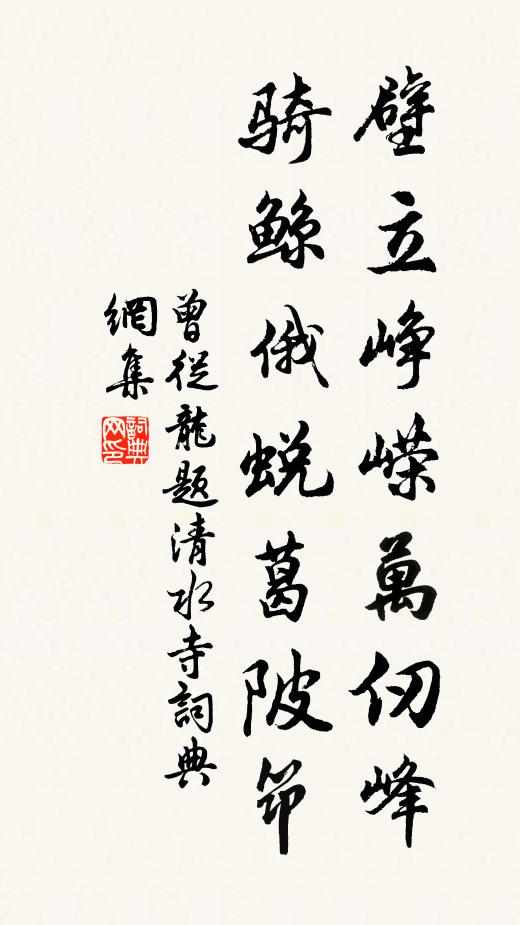 壁立崢嶸萬仞峰
騎鯨俄蛻葛陂筇
曾從龍題清水寺詞典
網集
詞典
网印